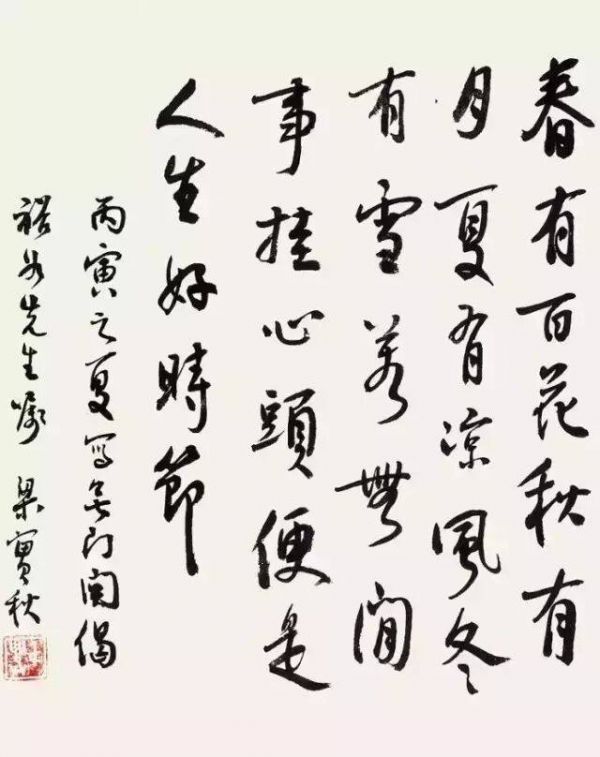 春有百花秋有
月夏有凉風冬
有雪若無閒
事挂心頭便是
人生好時節
丙寅之夏写無门関偈
先生嘱 梁實秋